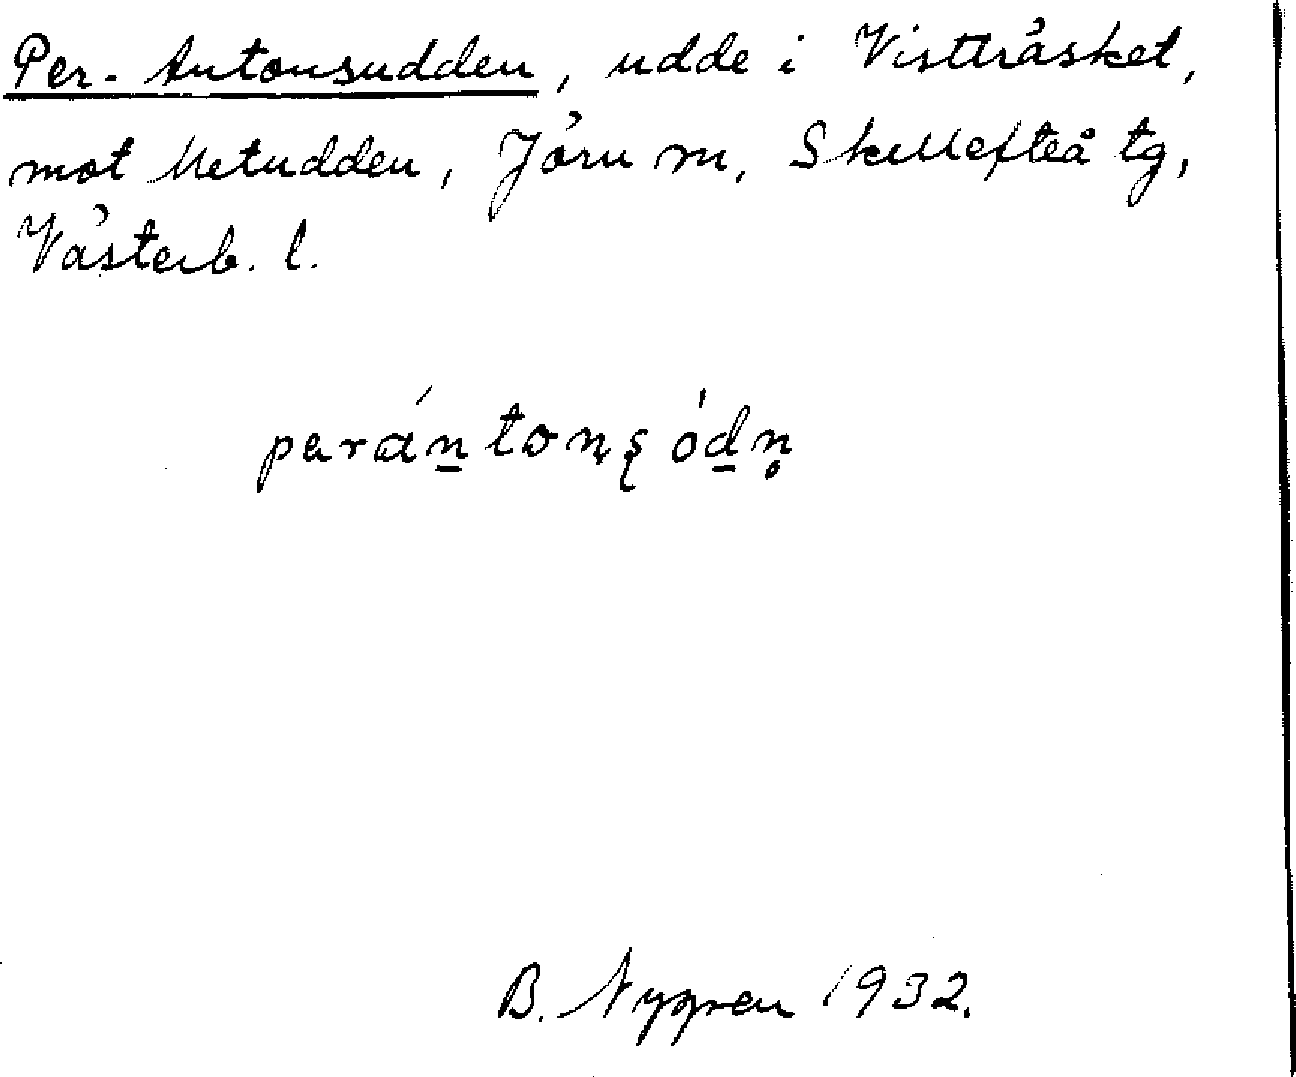 Per-Antonsudden, udde i Vistträsket,
mot Metudden, Jörn sn, Skellefteå tg,
Västerb. l.
perán̲tonşód̲n̥
B. Nygren 1932.